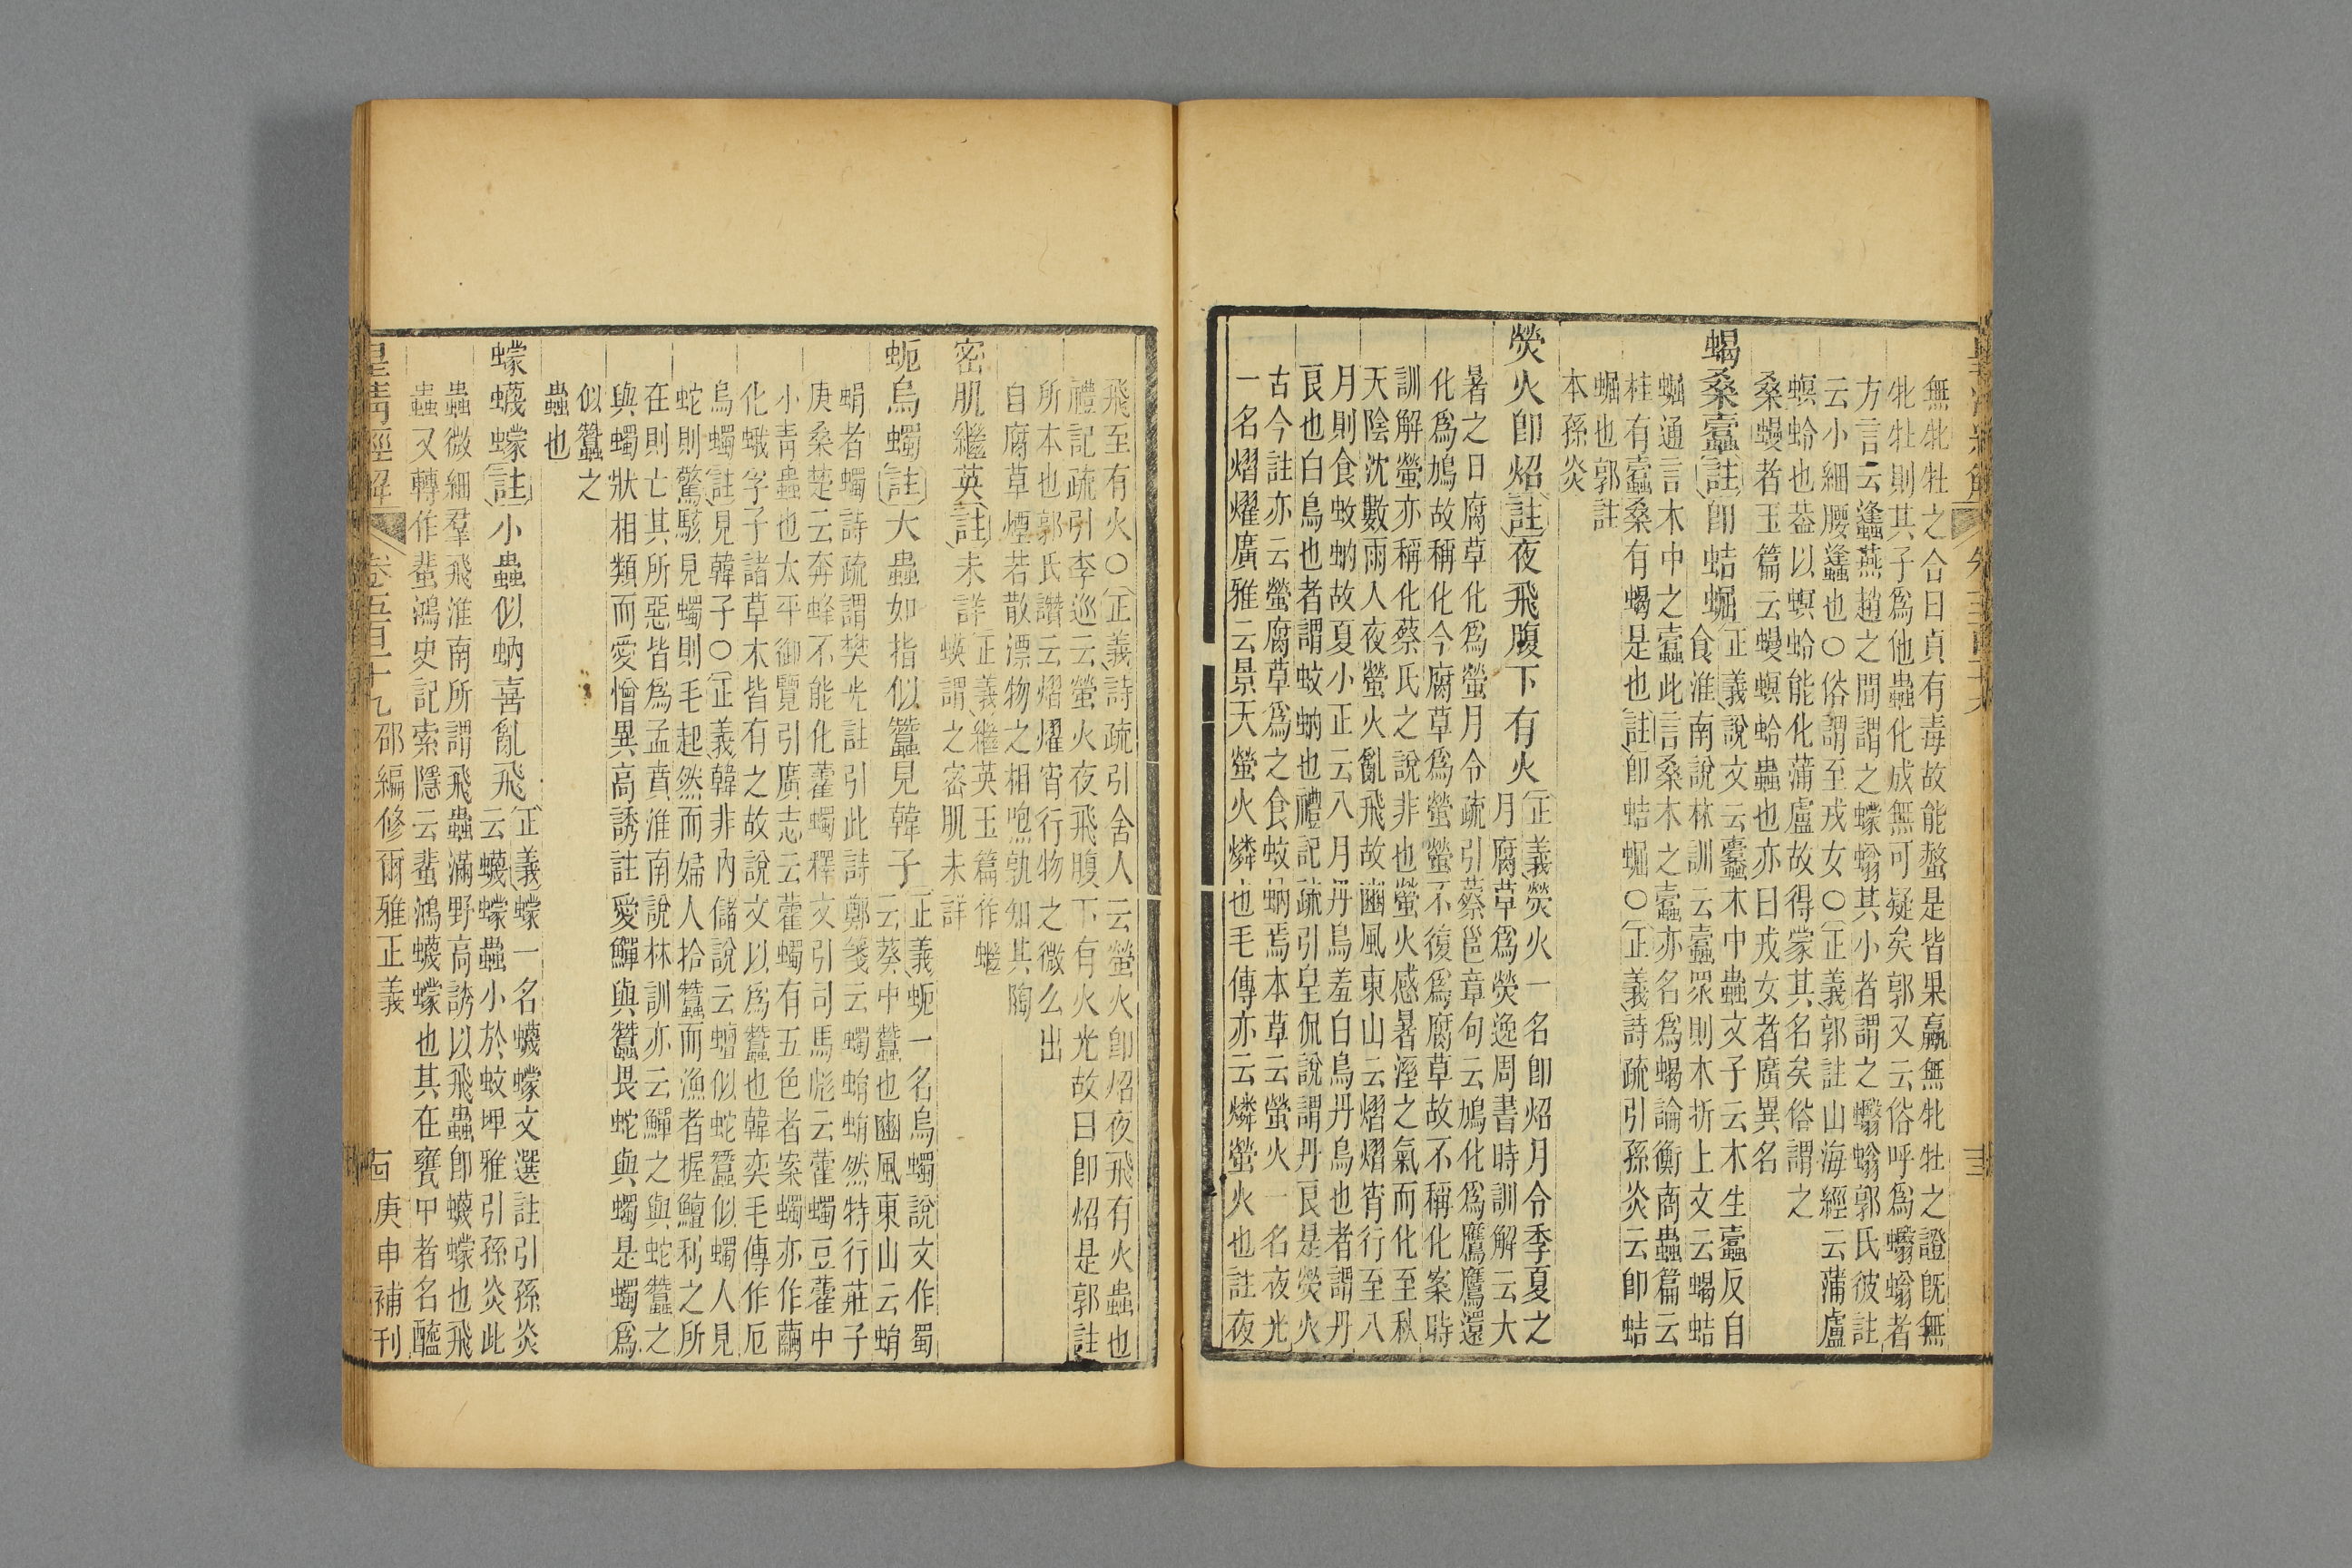 無牝牡之合曰貞有毒故能螫是皆果蠃無牝牡之證旣無
牝牡則其子爲他蟲化成無可疑矣郭又云俗呼爲蠮螉者
方言云蠭燕趙之間謂之蠓螉其小者謂之蠮螉郭氏彼註
云小細腰蠭也○俗謂至戎女○正義郭註山海經云蒲盧
螟蛉也葢以螟蛉能化蒲盧故得蒙其名矣俗謂之
桑蟃者玉篇云蟃螟蛉蟲也亦曰戎女者廣異名
蝎桑蠹註卽蛣𧌑正義說文云蠹木中蟲文子云木生蠹反自
食淮南說林訓云蠹眾則木折上文云蝎蛣
𧌑通言木中之蠹此言桑木之蠹亦名爲蝎論衡商蟲篇云
桂有蠹桑有蝎是也註卽蛣𧌑○正義詩疏引孫炎云卽蛣
𧌑也郭註
本孫炎
熒火卽炤註夜飛腹下有火正義熒火一名卽炤月令季夏之
月腐草爲熒逸周書時訓解云大
暑之日腐草化爲螢月令疏引蔡邕章句云鳩化爲鷹鷹還
化爲鳩故稱化今腐草爲螢螢不復爲腐草故不稱化案時
訓解螢亦稱化蔡氏之說非也螢火感暑溼之氣而化至秋
天陰沈數雨人夜螢火亂飛故豳風東山云熠熠宵行至八
月則食蚊蚋故夏小正云八月丹鳥羞白鳥丹鳥也者謂丹
良也白鳥也者謂蚊蚋也禮記疏引皇侃說謂丹良是熒火
古今註亦云螢腐草爲之食蚊蚋焉本草云螢火一名夜光
一名熠燿廣雅云景天螢火燐也毛傳亦云燐螢火也註夜
飛至有火○正義詩疏引舍人云螢火卽炤夜飛有火蟲也
禮記疏引李巡云螢火夜飛腹下有火光故曰卽炤是郭註
所本也郭氏讚云熠燿宵行物之微么出
自腐草煙若散漂物之相煦孰知其陶
密肌繼英註未詳正義繼英玉篇作蠿
蝧謂之密肌未詳
蚅烏蠋註大蟲如指似蠶見韓子正義蚅一名烏蠋說文作蜀
云葵中蠶也豳風東山云蜎
蜎者蠋詩疏謂樊光註引此詩鄭箋云蠋蜎蜎然特行莊子
庚桑楚云奔蜂不能化藿蠋釋文引司馬彪云藿蠋豆藿中
小靑蟲也太平御覽引廣志云藿蠋有五色者案蠋亦作繭
化蛾孚子諸草木皆有之故說文以爲蠶也韓奕毛傳作厄
烏蠋註見韓子○正義韓非內儲說云蟺似蛇蠶似蠋人見
蛇則驚駭見蠋則毛起然而婦人拾蠶而漁者握鱣利之所
在則亡其所惡皆爲孟賁淮南說林訓亦云鱓之與蛇蠶之
與蠋狀相類而愛憎異高誘註愛鱓與蠶畏蛇與蠋是蠋爲
似蠶之
蟲也
蠓蠛蠓註小蟲似蚋喜亂飛正義蠓一名蠛蠓文選註引孫炎
云蠛蠓蟲小於蚊埤雅引孫炎此
蟲微細羣飛淮南所謂飛蟲滿野高誘以飛蟲卽蠛蠓也飛
蟲又轉作蜚鴻史記索隱云蜚鴻蠛蠓也其在甕中者名醯
皇淸經解 卷五百十九 邵編修爾雅正義 古 庚申補刊